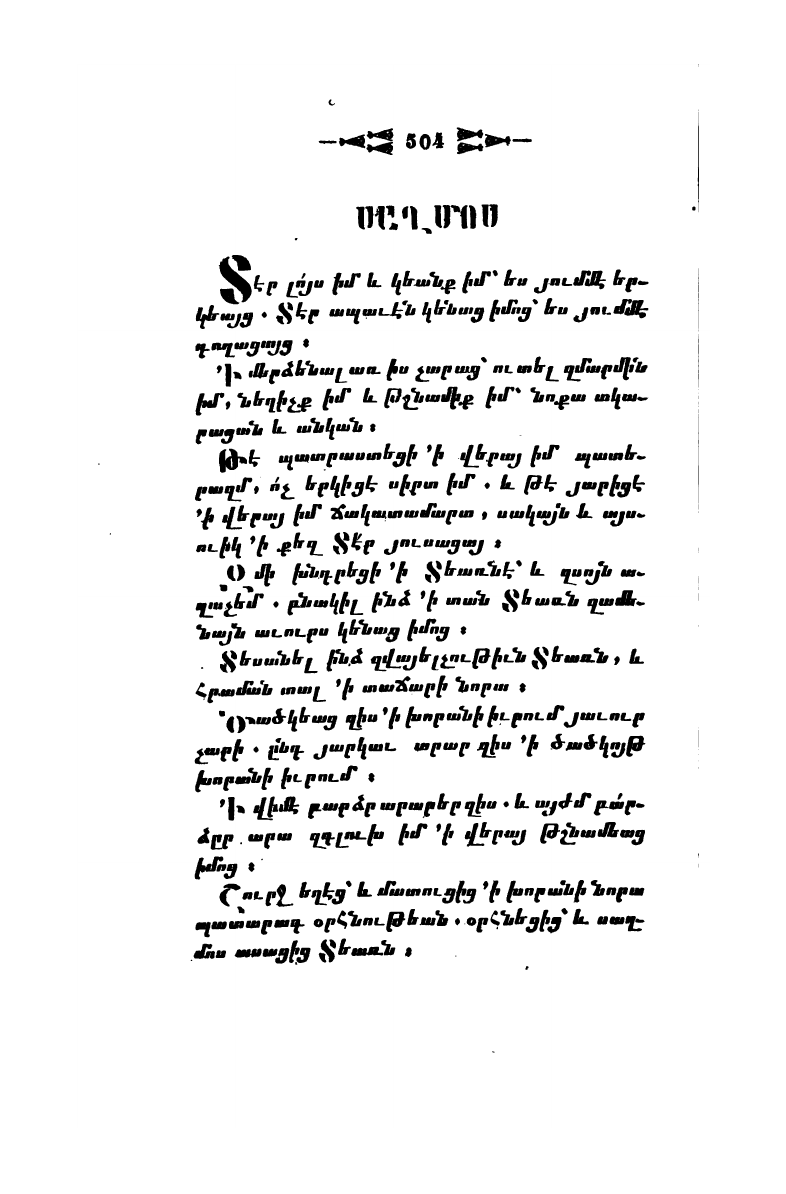 504
ՍԱՂՄՈՍ
Տէր լո՛յս իմ և կեանք իմ՝ ես յումմէ եր-
կեայց. Տէր ապաւէ՛ն կե՛նաց իմոց՝ ես յումմէ
դողացայց։
՚Ի մերձենալ առ իս չարաց՝ ուտել զմարմին
իմ, նեղիչք իմ և թշնամիք իմ՝ նոքա տկա-
րացան և անկան։
Թէ պատրաստեցի ՚ի վերայ իմ պատե-
րազմ, ո՛չ երկիցէ սիրտ իմ. և թէ յարիցէ
՚ի վերայ իմ ճակատամարտ, սակայն և այս-
ուիկ ՚ի քեզ Տէր յուսացայ։
Զմի խնդրեցի ՚ի Տեառնէ՝ և զսոյն ա-
ղաչեմ. բնակիլ ինձ ՚ի տան Տեառն զամե-
նայն աւուրս կենաց իմոց։
Տեսանել ինձ զվայելչութիւն Տեառն, և
հրաման տալ ՚ի տաճարի նորա։
Ծածկեաց զիս ՚ի խորանի իւրում յաւուր
չարի. ընդ յարկաւ արար զիս ՚ի ծածկոյթ
խորանի իւրում։
՚Ի վիմէ բարձր արարեր զիս. և այժմ բա՛ր-
ձրր արա զգլուխ իմ ՚ի վերայ թշնամեաց
իմոց։
Շուրջ եղէց՝ և մատուցից ՚ի խորանի նորա
պատարագ օրհնութեան. օրհնեցից՝ և սաղ-
մոս ասացից Տեառն։